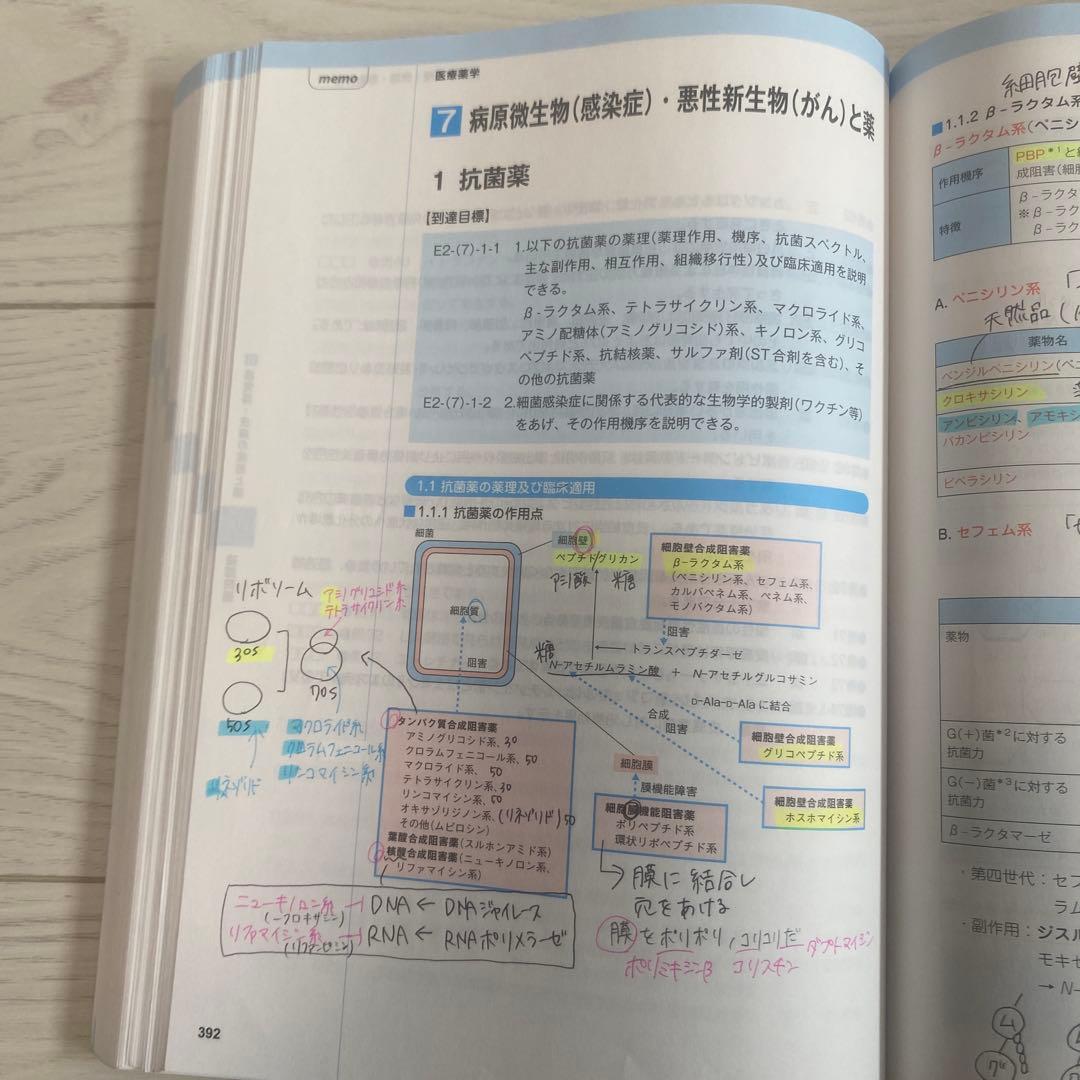 memo
医療薬学
7 病原微生物(感染症)・悪性新生物(がん)と薬
1 抗菌薬
【到達目標】
E2-(7)-1-1 1.以下の抗菌薬の薬理(薬理作用、機序、抗菌スペクトル、
主な副作用、相互作用、組織移行性)及び臨床適用を説明
できる。
β-ラクタム系、テトラサイクリン系、マクロライド系、
アミノ配糖体(アミノグリコシド)系、キノロン系、グリコ
ペプチド系、抗結核薬、サルファ剤(ST合剤を含む)、そ
の他の抗菌薬
E2-(7)-1-2 2.細菌感染症に関係する代表的な生物学的製剤(ワクチン等)
をあげ、その作用機序を説明できる。
1.1 抗菌薬の薬理及び臨床適用
■1.1.1 抗菌薬の作用点
細菌
細胞質
阻害
細胞壁
ペプチドグリカン
アミノ酸 糖
細胞壁合成阻害薬
β-ラクタム系
(ペニシリン系、セフェム系、
カルバペネム系、ペネム系、
モノバクタム系)
阻害
トランスペプチダーゼ
糖
N-アセチルムラミン酸 + N-アセチルグルコサミン
D-Ala-D-Alaに結合
合成
阻害
細胞壁合成阻害薬
グリコペプチド系
細胞壁合成阻害薬
ホスホマイシン系
細胞膜
膜機能障害
細胞膜機能阻害薬
ポリペプチド系
環状リポペプチド系
→膜に結合し
穴をあける
膜をポリポリ,コリコリだ
ダプトマイシン
ポリミキシンβ コリスチン
リボソーム
アミノグリコシド系
テトラサイクリン系
30S
70S
50S
マクロライド系
クロラムフェニコール系
リンコマイシン系
リネゾリド
タンパク質合成阻害薬
アミノグリコシド系、30
クロラムフェニコール系、50
マクロライド系、50
テトラサイクリン系、30
リンコマイシン系、50
オキサゾリジノン系、(リネゾリド)50
その他(ムピロシン)
葉酸合成阻害薬(スルホンアミド系)
核酸合成阻害薬(ニューキノロン系、
リファマイシン系)
ニューキノロン系→DNA←DNAジャイレース
(-フロキサシン)
リファマイシン系→RNA←RNAポリメラーゼ
(リファンピシン)
392
細胞壁
■1.1.2 β-ラクタム系
β-ラクタム系(ペニシ
作用機序
PBP*1と
成阻害(細胞
特徴
β-ラクタ
※β-ラク
β-ラク
A. ペニシリン系
天然品
薬物名
ベンジルペニシリン(ベ
クロキサシリン
アンピシリン、アモキシ
バカンピシリン
ピペラシリン
B. セフェム系
薬物
G(+)菌*2に対する
抗菌力
G(-)菌*3に対する
抗菌力
β-ラクタマーゼ
・第四世代：セフ
ラム
・副作用：ジスル
モキセ
→N-